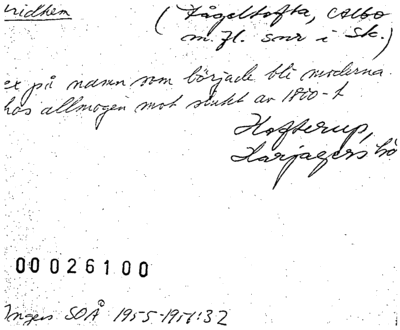 ridhem
(Fågeltofta, Albo
m.fl. snr i Sk.)
ex på namn som började bli moderna
hos allmogen mot slutet av 1800-t
Hofterup,
Harjagers hd
00026100
Ingers SOÅ 1955-1956:32